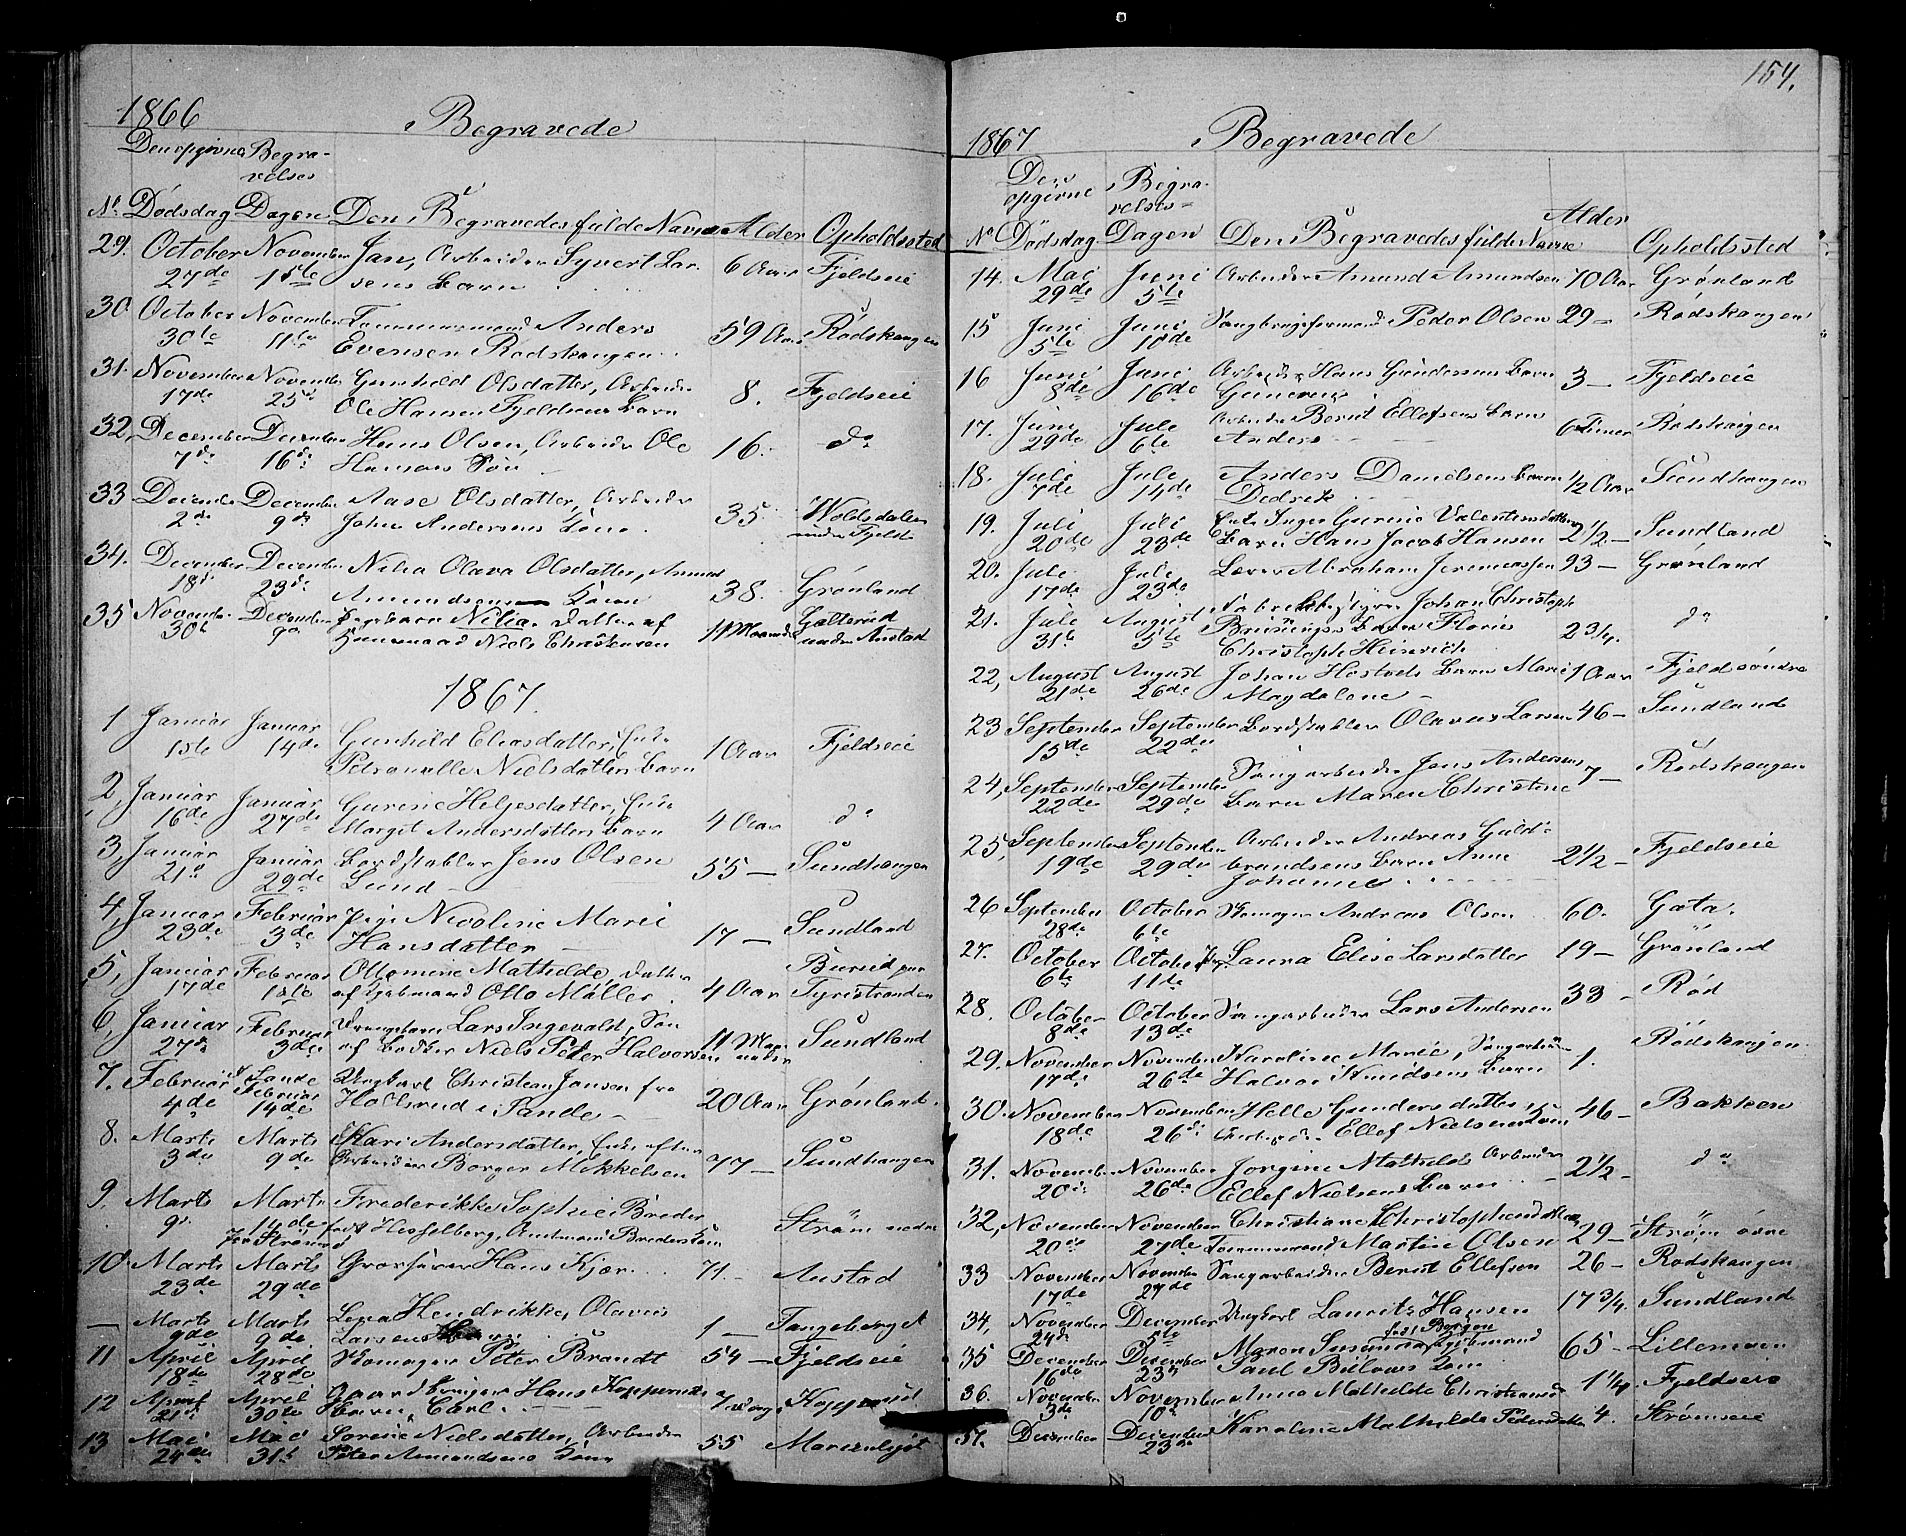 1866 Begravede
Den opgivne Begra-
velses
No. Dødsdag Dagen Den Begravedes fulde Navn Alder Opholdssted
29. October November Jan, Arbeider Syvert Lar- 6 Aar Fjeldseie
27de 1ste sens Barn
30 October November Tømmermand Anders 59 Aar Rødskangen
30te 11te Evensen Rødskangen
31. November November Gunhild Olsdatter, Arbeider 8. Fjeldseie
17de 25d Ole Hansen Fjeldseies Barn
32, December December Hans Olsen, Arbeider Ole 16. do
7de 16de Hansens Søn
33 December December Aase Olsdatter, Arbeider 35. Woldsdalen
2de 9de John Andersens Kone under Fjeld
34. December December Nilia Olava Olsdatter, Amund 38. Grønland
18d 23de Amundsens Kone
35 November December Pigebarn Nilia Datter af 11 Maaneder Gutterud
30te 9de Huusmand Niels Christensen under Austad
1867.
1 Januar Januar Gunhild Eliasdatter, Enke 1 Aar Fjeldseie
1ste 14de Petronelle Nielsdatters Barn
2, Januar Januar Gurine Helgesdatter, Enke 4 Aar do
16de 27de Margit Andersdatters Barn
3, Januar Januar Bordstabler Jens Olsen 55 — Sundhaugen
21de 29de Lund
4, Januar Februar Pige Nicoline Marie 17 — Sundland
23de 3de Hansdatter
5, Januar Februar Ottomine Mathilde, Datter 4 Aar Burud paa
17de 18de af Kjøbmand Otto Møller Tyristranden
6, Januar Februar Drengebarn Lars Ingevald, Søn 11 Maa- Sundland
27de 3de af Bødker Niels Peter Halvorsen neder
7. Februar i Sande Ungkarl Christian Jansen fra 20 Aar Grønland
4de Februar 14de Hollsrud i Sande
8. Marts Marts Kari Andersdatter, Enke efter 77 — Sundhaugen
3de 9de Arbeider Borger Mikkelsen
9. Marts Marts Frederikke Sophie Breder Strøm nedre
9de 14de født Hesselberg, Amtmand Breders Enke
10 Marts Marts Graver Hans Kjær 71. Austad
23de 29de
— Marts Marts Lena Hendrikke, Olavus 1 — Tangeberget
9de 9de Larsens Barn
11 April April Skomager Peter Brandt 54 — Fjeldseie
18de 28de
12 April April Gaardbruger Hans Koppervik 7 Dage
21de 30te Barn, Carl
13 Mai Mai Sørine Nielsdatter, Arbeider 55 Marienlyst
24de 31te Peter Amundsens Kone
154.
1867 Begravede
Den Begra-
opgivne velses-
No Dødsdag Dagen Den Begravedes fulde Navne Alder Opholdssted
14. Mai Juni Arbeider Amund Amundsen 70 Aar Grønland
29de 5te
15 Juni Juni Saugbrugsformand Peder Olsen 29 — Rødskangen
5te 10de
16 Juni Juni Arbeider Hans Gundersens Barn 3 — Fjeldseie
8de 16de
17. Juni Juli Arbeider Bernt Ellefsens Barn 6 Timer Rødskangen
29de 6te Anders
18. Juli Juli Anders Danielsens Barn 1/2 Aar Sundhaugen
7de 14de Dedrik
19. Juli Juli Enke Inger Gurine Valentinsdatters 2 1/2 — Sundland
20de 23de Barn Hans Jacob Hansen
20. Juli Juli Lærer Abraham Jeremiassen 93 — Grønland
17de 23de
21. Juli August Fabrikbestyrer Johan Christoph 2 3/4. do
31te 5te Brunings Barn Floris
Christoph Heinrich
22, August August Johan Hostveds Barn Marie 1 Aar Fjeld søndre
21de 26de Magdalene
23 September September Bordstabler Olavus Larsen 46 — Sundland
15de 22de
24, September September Saugarbeider Jens Andersens 7 — Rødskangen
22de 29de Barn Maren Christine
25, September September Arbeider Andreas Guld- 2 1/2 — Fjeldseie
19de 29de brandsens Barn Anne
Johanne
26 September October Skomager Andreas Olsen 60. Gata.
28de 6te
27. October October Pige Laura Elise Larsdatter 19 — Grønland
6te 11te
28. October October Saugarbeider Lars Andersen 33 — Rød
8de 13de
29. November November Karoline Marie, Saugarbeider 1. Rødskangen
17de 26de Halvor Knudsens Barn
30. November November Helle Gundersdatter, 46 — Bakken
18de 26de Arbeider Ellef Nielsens Kone
31. November November Jørgine Mathilde Arbeider 2 1/2 — do
20de 26de Ellef Nielsens Barn
32, November November Christiane Christophersdatter, 29 — Strøm øvre
20de 27de Tømmermand Martin Olsen
33 November November Saugarbeider Bernt Ellefsen 26 — Rødskangen
17de 27de
34, November December Ungkarl Laurits Hansen 17 3/4. Sundland
24de 5te født Bergen
35 December December Maren Susanna Kjøbmand 65 — Lillemoen
16de 23de Paul Bulows Kone
36. November November Anna Mathilde Christians 1 1/4. Fjeldseie
3de 10de
37. December December Karoline Mathilde Pedersdatter 4. Strømseie
23de